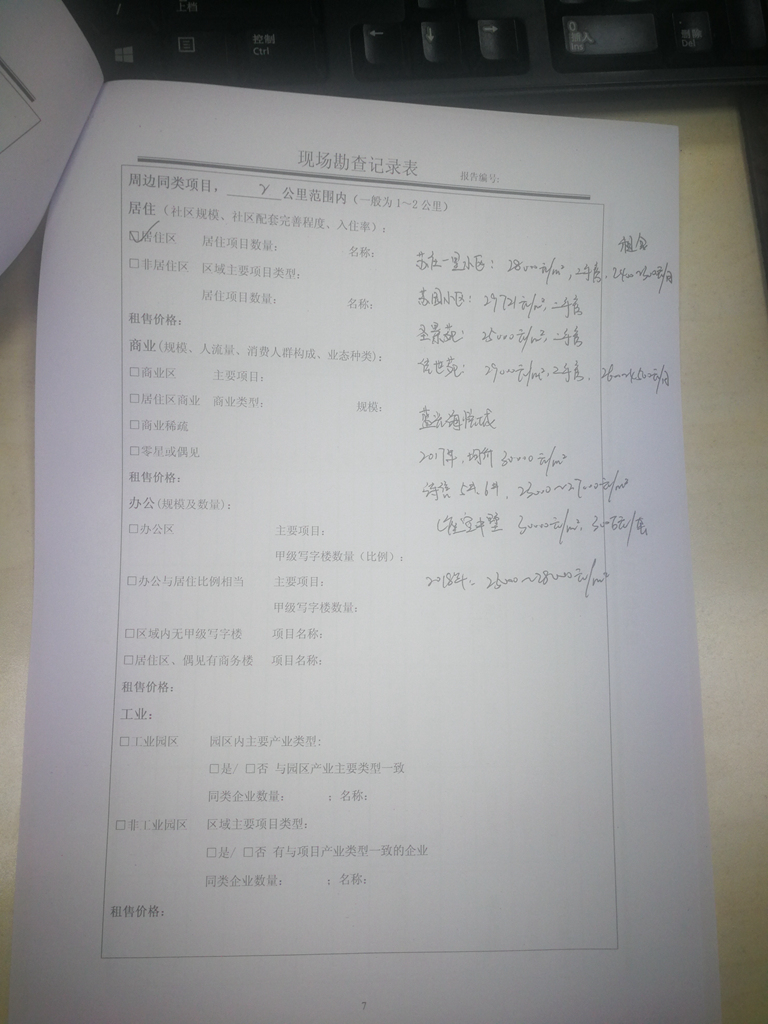 上档
控制
Ctrl
←
↓
→
0
插入
Ins
删除
Del
现场勘查记录表
报告编号:
周边同类项目，2公里范围内（一般为1～2公里）
居住（社区规模、社区配套完善程度、入住率）：
☑居住区 居住项目数量: 名称:
租金
苏庄一里小区: 28000元/m², 二手房,
□非居住区 区域主要项目类型:
居住项目数量: 名称:
29721元/m², 二手房
租售价格:
圣景苑: 25000元/m², 二手房
商业(规模、人流量、消费人群构成、业态种类):
佳世苑: 29000元/m², 二手房,
□商业区 主要项目:
□居住区商业 商业类型: 规模:
□商业稀疏
□零星或偶见
2017年, 均价 30000元/m²
租售价格:
待售 5#, 6#, 23000～27000元/m²
办公(规模及数量):
□办公区 主要项目:
30000元/m², 300万元/套
甲级写字楼数量(比例):
□办公与居住比例相当 主要项目:
2018年: 25000～28000元/m²
甲级写字楼数量:
□区域内无甲级写字楼 项目名称:
□居住区、偶见有商务楼 项目名称:
租售价格:
工业:
□工业园区 园区内主要产业类型:
□是/ □否 与园区产业主要类型一致
同类企业数量: ; 名称:
□非工业园区 区域主要项目类型:
□是/ □否 有与项目产业类型一致的企业
同类企业数量: ; 名称:
租售价格:
7